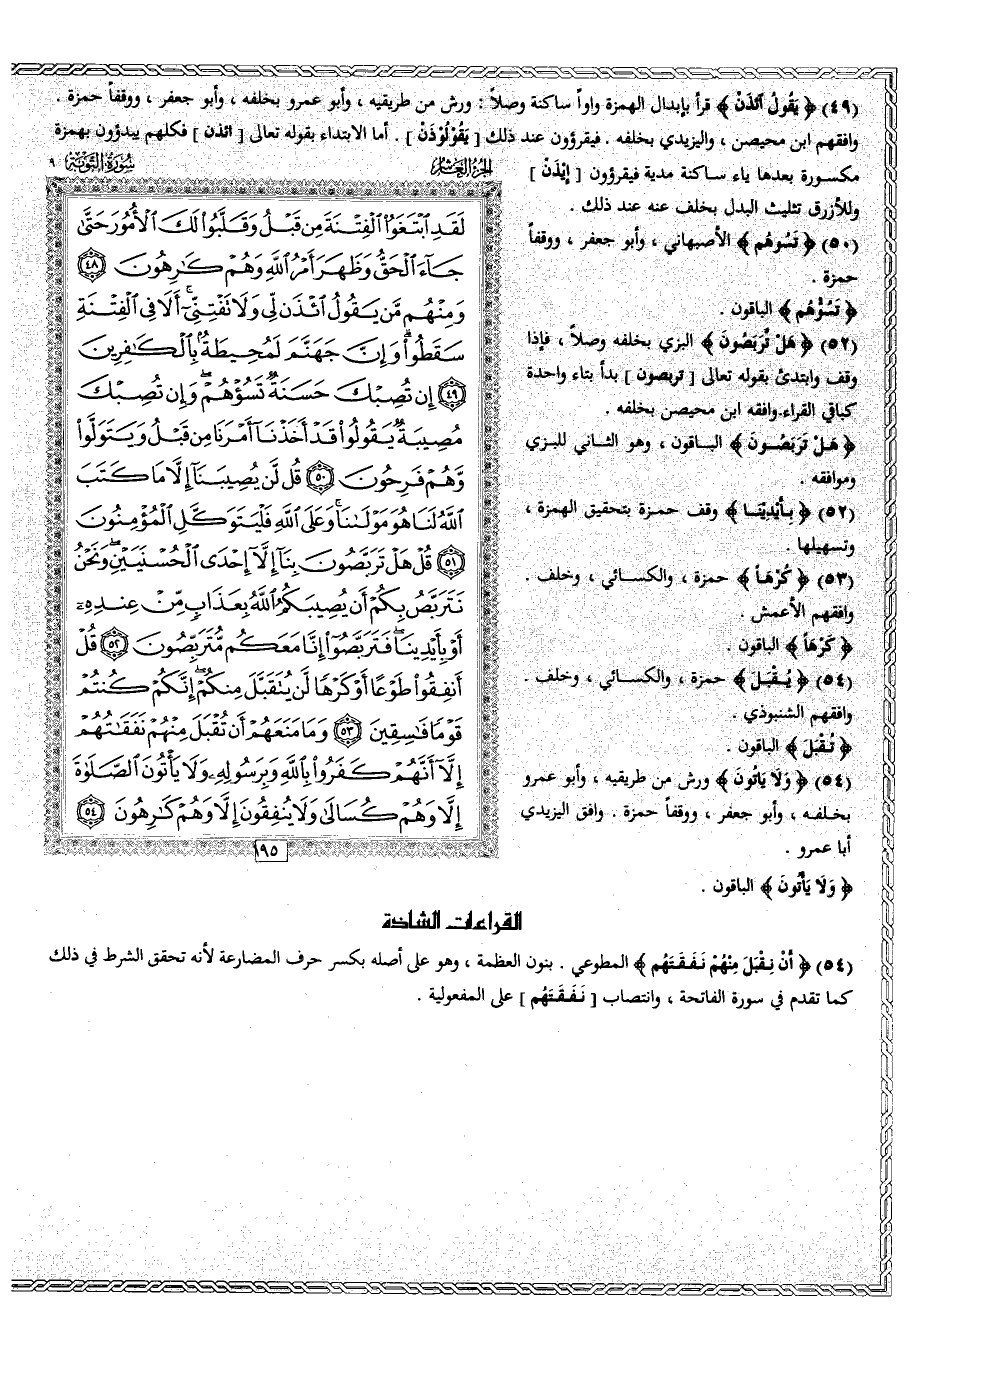 (٤٩) ﴿ يَقُولُ ائْذَنْ ﴾ قرأ بإبدال الهمزة واواً ساكنة وصلاً : ورش من طريقيه ، وأبو عمرو بخلفه ، وأبو جعفر ، ووقفاً حمزة .
وافقهم ابن محيصن ، واليزيدي بخلفه . فيقرؤون عند ذلك [ يَقُوْلُوْذَنْ ] . أما الابتداء بقوله تعالى [ ائذن ] فكلهم يبدؤون بهمزة
مكسورة بعدها ياء ساكنة مدية فيقرؤون [ إيْذَنْ ]
وللأزرق تثليث البدل بخلف عنه عند ذلك .
(٥٠) ﴿ تَسُوهُم ﴾ الأصبهاني ، وأبو جعفر ، ووقفاً
حمزة .
﴿ تَسُؤْهُم ﴾ الباقون .
(٥٢) ﴿ هَلْ تَّرَبَّصُونَ ﴾ البزي بخلفه وصلاً ، فإذا
وقف وابتدئ بقوله تعالى [ تربصون ] بدأ بتاء واحدة
كباقي القراء.وافقه ابن محيصن بخلفه .
﴿ هَلْ تَرَبَّصُونَ ﴾ الباقون ، وهو الثاني للبزي
وموافقه .
(٥٢) ﴿ بِأَيْدِيْنَا ﴾ وقف حمزة بتحقيق الهمزة ،
وتسهيلها .
(٥٣) ﴿ كُرْهَاً ﴾ حمزة ، والكسائي ، وخلف .
وافقهم الأعمش .
﴿ كَرْهَاً ﴾ الباقون .
(٥٤) ﴿ يُقْبَلَ ﴾ حمزة ، والكسائي ، وخلف .
وافقهم الشنبوذي .
﴿ تُقْبَلَ ﴾ الباقون .
(٥٤) ﴿ وَلَا يَاتُونَ ﴾ ورش من طريقيه ، وأبو عمرو
بخلفه ، وأبو جعفر ، ووقفاً حمزة . وافق اليزيدي
أبا عمرو .
﴿ وَلَا يَأْتُونَ ﴾ الباقون .
الجزء العاشر
سورة التوبة ٩
لَقَدِ ٱبْتَغَوُا۟ ٱلْفِتْنَةَ مِن قَبْلُ وَقَلَّبُوا۟ لَكَ ٱلْأُمُورَ حَتَّىٰ
جَآءَ ٱلْحَقُّ وَظَهَرَ أَمْرُ ٱللَّهِ وَهُمْ كَـٰرِهُونَ ٤٨
وَمِنْهُم مَّن يَقُولُ ٱئْذَن لِّى وَلَا تَفْتِنِّىٓ ۚ أَلَا فِى ٱلْفِتْنَةِ
سَقَطُوا۟ ۗ وَإِنَّ جَهَنَّمَ لَمُحِيطَةٌۢ بِٱلْكَـٰفِرِينَ
٤٩ إِن تُصِبْكَ حَسَنَةٌ تَسُؤْهُمْ ۖ وَإِن تُصِبْكَ
مُصِيبَةٌ يَقُولُوا۟ قَدْ أَخَذْنَآ أَمْرَنَا مِن قَبْلُ وَيَتَوَلَّوا۟
وَّهُمْ فَرِحُونَ ٥٠ قُل لَّن يُصِيبَنَآ إِلَّا مَا كَتَبَ
ٱللَّهُ لَنَا هُوَ مَوْلَىٰنَا ۚ وَعَلَى ٱللَّهِ فَلْيَتَوَكَّلِ ٱلْمُؤْمِنُونَ
٥١ قُلْ هَلْ تَرَبَّصُونَ بِنَآ إِلَّآ إِحْدَى ٱلْحُسْنَيَيْنِ ۖ وَنَحْنُ
نَتَرَبَّصُ بِكُمْ أَن يُصِيبَكُمُ ٱللَّهُ بِعَذَابٍ مِّنْ عِندِهِۦٓ
أَوْ بِأَيْدِينَا ۖ فَتَرَبَّصُوٓا۟ إِنَّا مَعَكُم مُّتَرَبِّصُونَ ٥٢ قُلْ
أَنفِقُوا۟ طَوْعًا أَوْ كَرْهًا لَّن يُتَقَبَّلَ مِنكُمْ ۖ إِنَّكُمْ كُنتُمْ
قَوْمًا فَـٰسِقِينَ ٥٣ وَمَا مَنَعَهُمْ أَن تُقْبَلَ مِنْهُمْ نَفَقَـٰتُهُمْ
إِلَّآ أَنَّهُمْ كَفَرُوا۟ بِٱللَّهِ وَبِرَسُولِهِۦ وَلَا يَأْتُونَ ٱلصَّلَوٰةَ
إِلَّا وَهُمْ كُسَالَىٰ وَلَا يُنفِقُونَ إِلَّا وَهُمْ كَـٰرِهُونَ ٥٤
١٩٥
القراءات الشاذة
(٥٤) ﴿ أَنْ نِقْبَلَ مِنْهُمْ نَفَقَتَهُم ﴾ المطوعي . بنون العظمة ، وهو على أصله بكسر حرف المضارعة لأنه تحقق الشرط في ذلك
كما تقدم في سورة الفاتحة ، وانتصاب [ نَفَقَتَهُم ] على المفعولية .